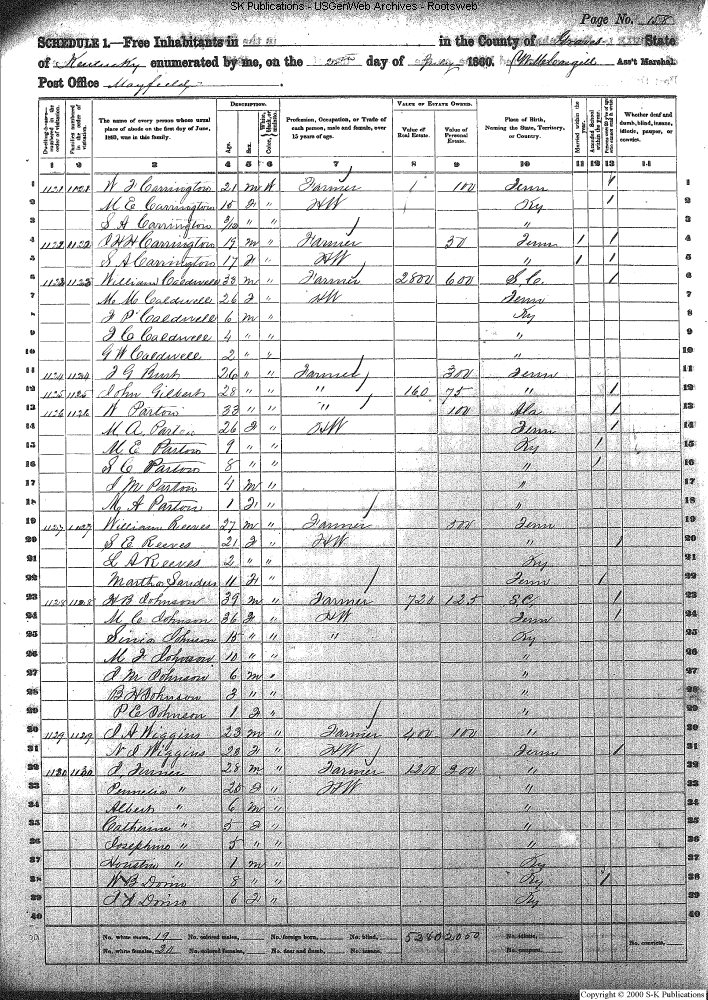 SK Publications - USGenWeb Archives - Rootsweb
Page No. 158
SCHEDULE 1.—Free Inhabitants in in the County of Graves State
of Kentucky enumerated by me, on the day of 1860. Ass't Marshal.
Post Office Mayfield
Dwelling-houses—numbered in the order of visitation.
Families numbered in the order of visitation.
The name of every person whose usual place of abode on the first day of June, 1860, was in this family.
DESCRIPTION.
Age.
Sex.
White, black, or mulatto. Color,
Profession, Occupation, or Trade of each person, male and female, over 15 years of age.
VALUE OF ESTATE OWNED.
Value of Real Estate.
Value of Personal Estate.
Place of Birth, Naming the State, Territory, or Country.
Married within the year.
Attended School within the year.
Whether deaf and dumb, blind, insane, idiotic, pauper, or convict.
1 2 3 4 5 6 7 8 9 10 11 12 13 14
1 1121 1121 W F Carrington 21 m W Farmer 100 Tenn / 1
2 M E Carrington 15 F " HW Ky / 2
3 S A Carrington " " " 3
4 1122 1122 Carrington 19 m " Farmer 50 Tenn / / 4
5 S A Carrington 17 F " HW " / / 5
6 1123 1123 William Caldwell 33 m " Farmer 2800 600 S.C. / 6
7 M M Caldwell 26 F " HW Tenn 7
8 J P Caldwell 6 m " Ky 8
9 J C Caldwell 4 " " " 9
10 G W Caldwell 2 " " " 10
11 1124 1124 J G Burt 26 " " Farmer 300 Tenn 11
12 1125 1125 John Gilbert 28 " " " 160 75 " / 12
13 1126 1126 W Parton 33 " " " 100 Ala / 13
14 M A Parton 26 F " HW Tenn / 14
15 M E Parton 9 " " Ky / 15
16 S C Parton 8 " " " / 16
17 J M Parton 4 m " " 17
18 M A Parton 1 F " " 18
19 1127 1127 William Reeves 27 m " Farmer 500 Tenn 19
20 S E Reeves 21 F " HW " / 20
21 L A Reeves 2 " " Ky 21
22 Martha Sanders 11 F " Tenn / 22
23 1128 1128 H B Johnson 39 m " Farmer 720 125 S.C. / 23
24 M E Johnson 36 F " HW Tenn / 24
25 Johnson 15 " " " Ky 25
26 M F Johnson 10 " " " 26
27 J M Johnson 6 m " " 27
28 B H Johnson 3 " " " 28
29 P E Johnson 1 F " " 29
30 1129 1129 J A Wiggins 23 m " Farmer 400 100 " 30
31 N J Wiggins 20 F " HW Tenn / 31
32 1130 1130 J 28 m " Farmer 1200 300 " 32
33 Permelia " 25 F " HW " 33
34 Albert " 6 m " " 34
35 Catherine " 5 F " " 35
36 Josephine " 5 " " " 36
37 Houston " 1 m " Ky 37
38 W B 8 " " Ky / 38
39 6 F " Ky 39
40 40
No. white males, 19 No. colored males, No. foreign born, No. blind, 5280 2050 No. idiotic, No. convicts,
No. white females, 20 No. colored females, No. deaf and dumb, No. insane, No. paupers,
Copyright © 2000 S-K Publications